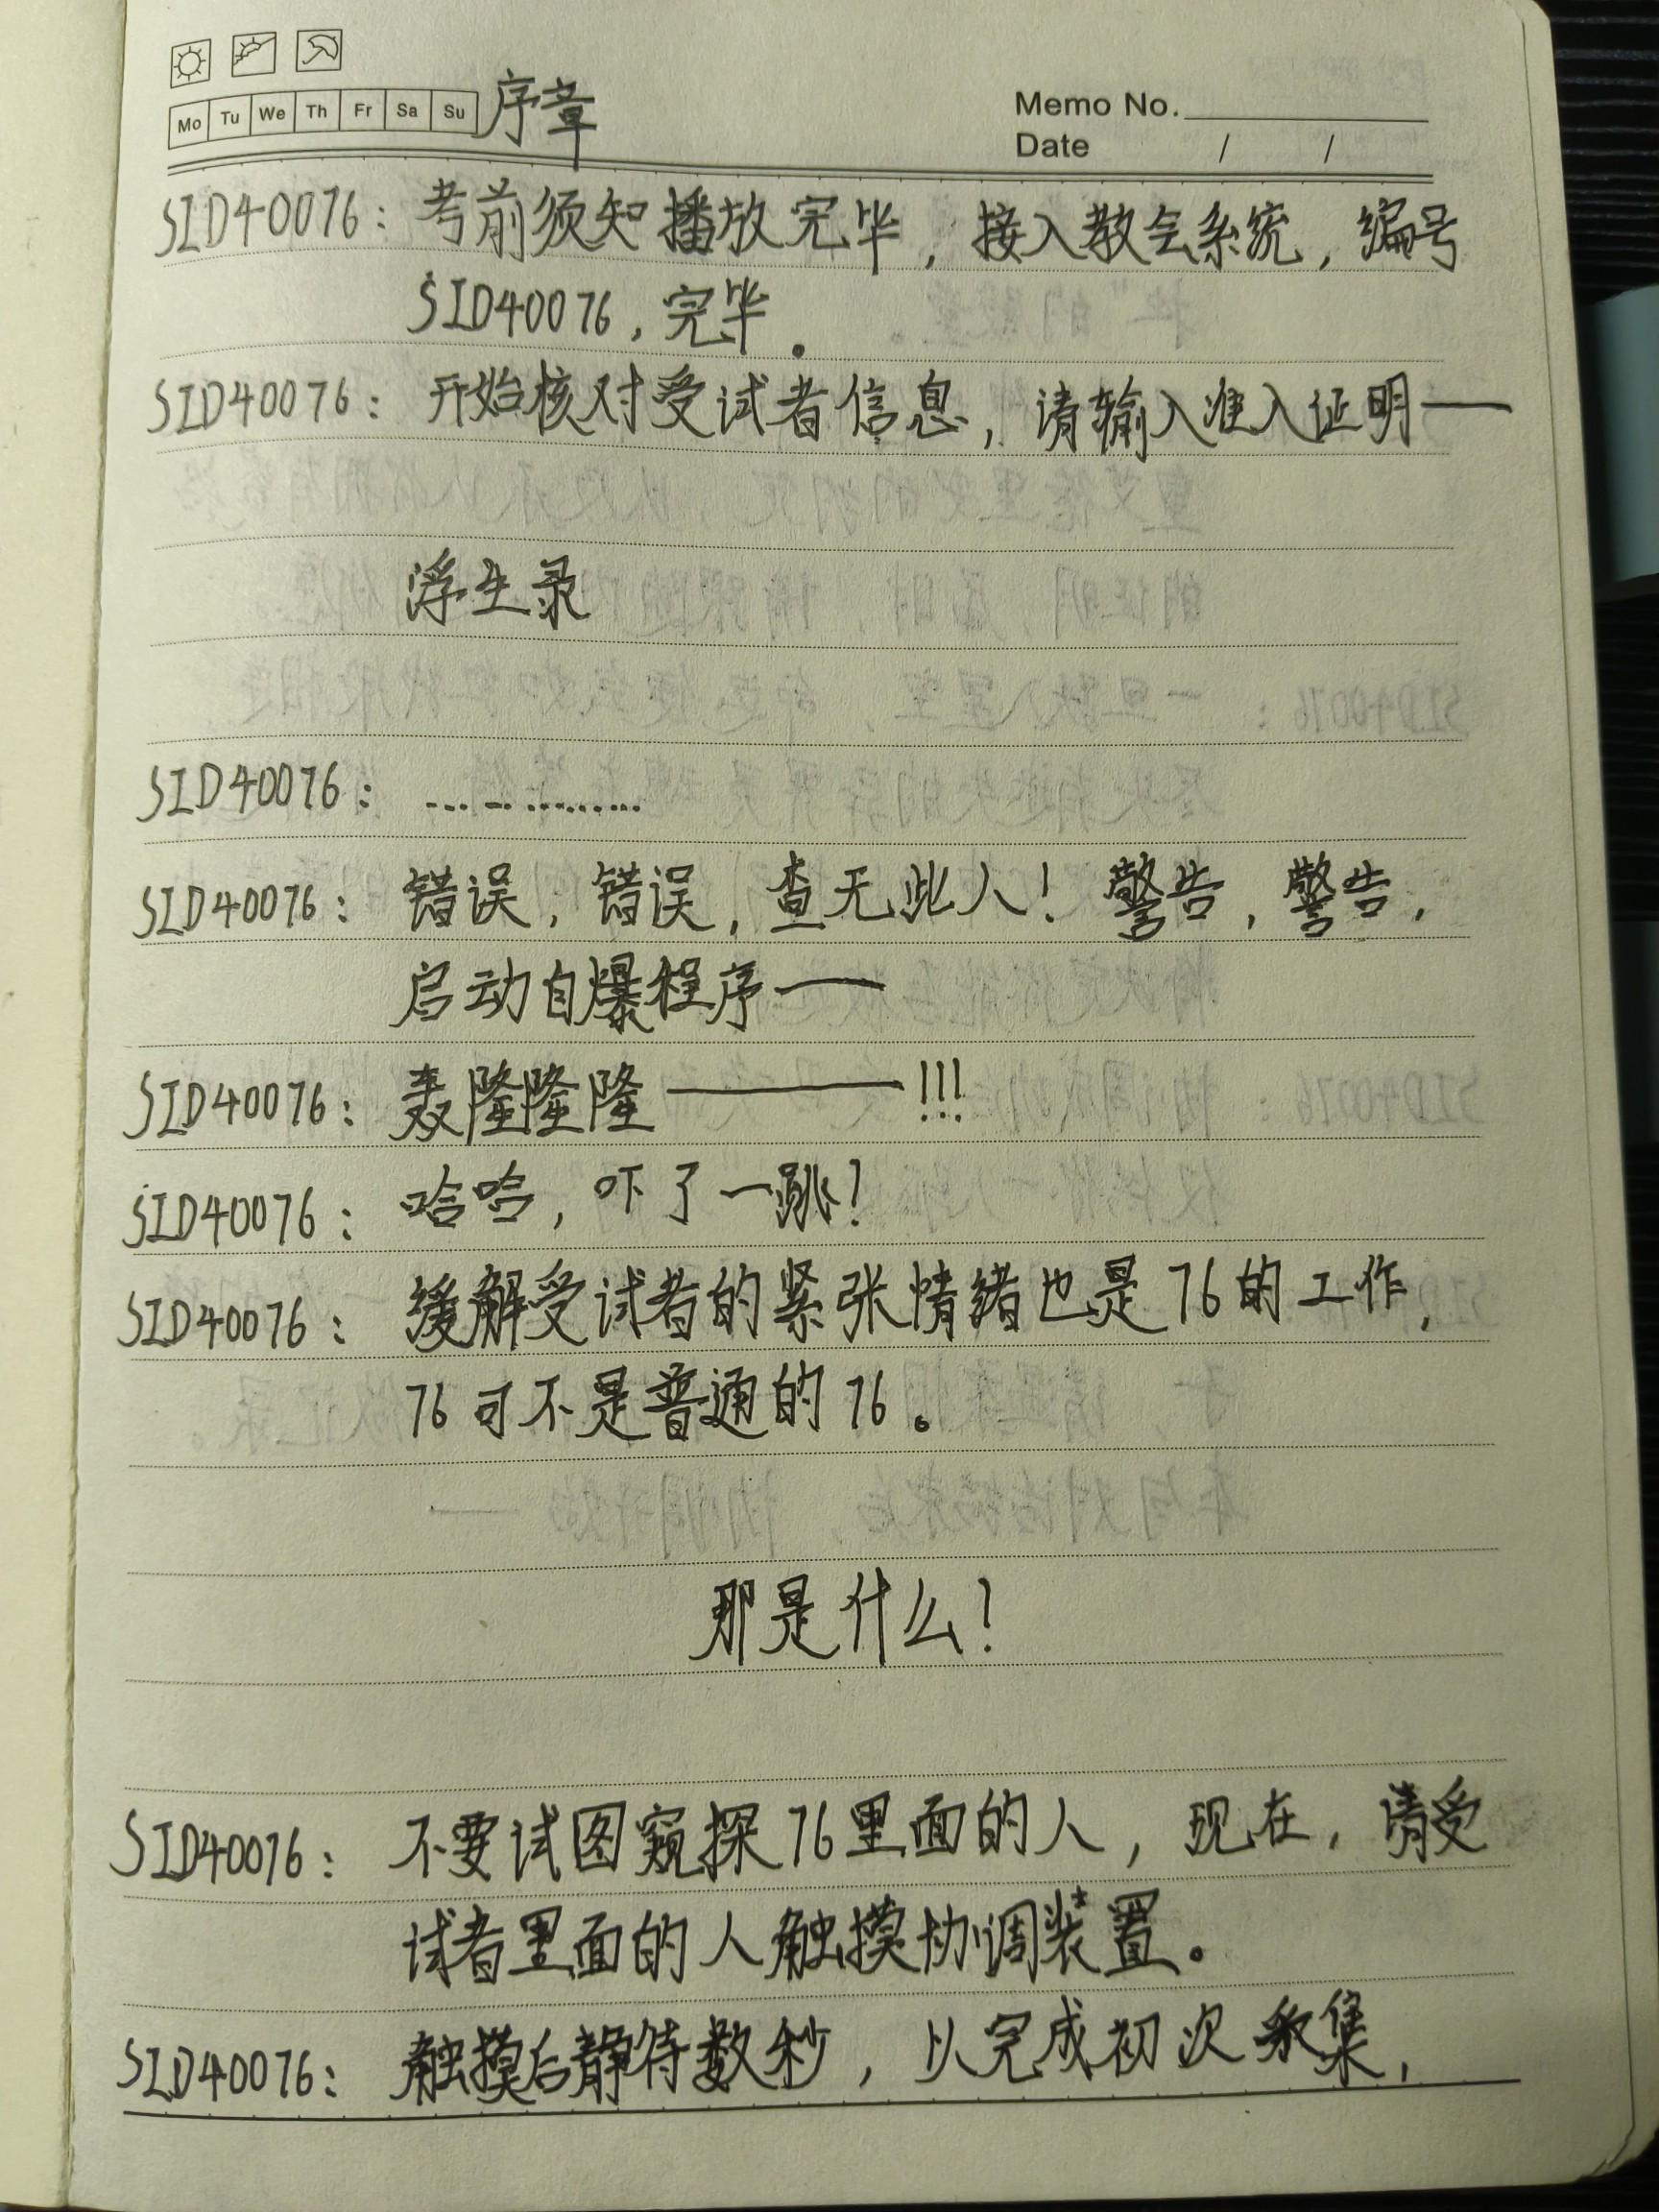 Mo Tu We Th Fr Sa Su 序章 Memo No.
Date / /
SID40076：考前须知播放完毕，接入教会系统，编号
SID40076，完毕．
SID40076：开始核对受试者信息，请输入准入证明——
浮生录
SID40076：……………
SID40076：错误，错误，查无此人！警告，警告，
启动自爆程序——
SID40076：轰隆隆隆————!!!
SID40076：哈哈，吓了一跳！
SID40076：缓解受试者的紧张情绪也是76的工作，
76可不是普通的76。
那是什么！
SID40076：不要试图窥探76里面的人，现在，请受
试者里面的人触摸协调装置。
SID40076：触摸后静待数秒，以完成初次采集，